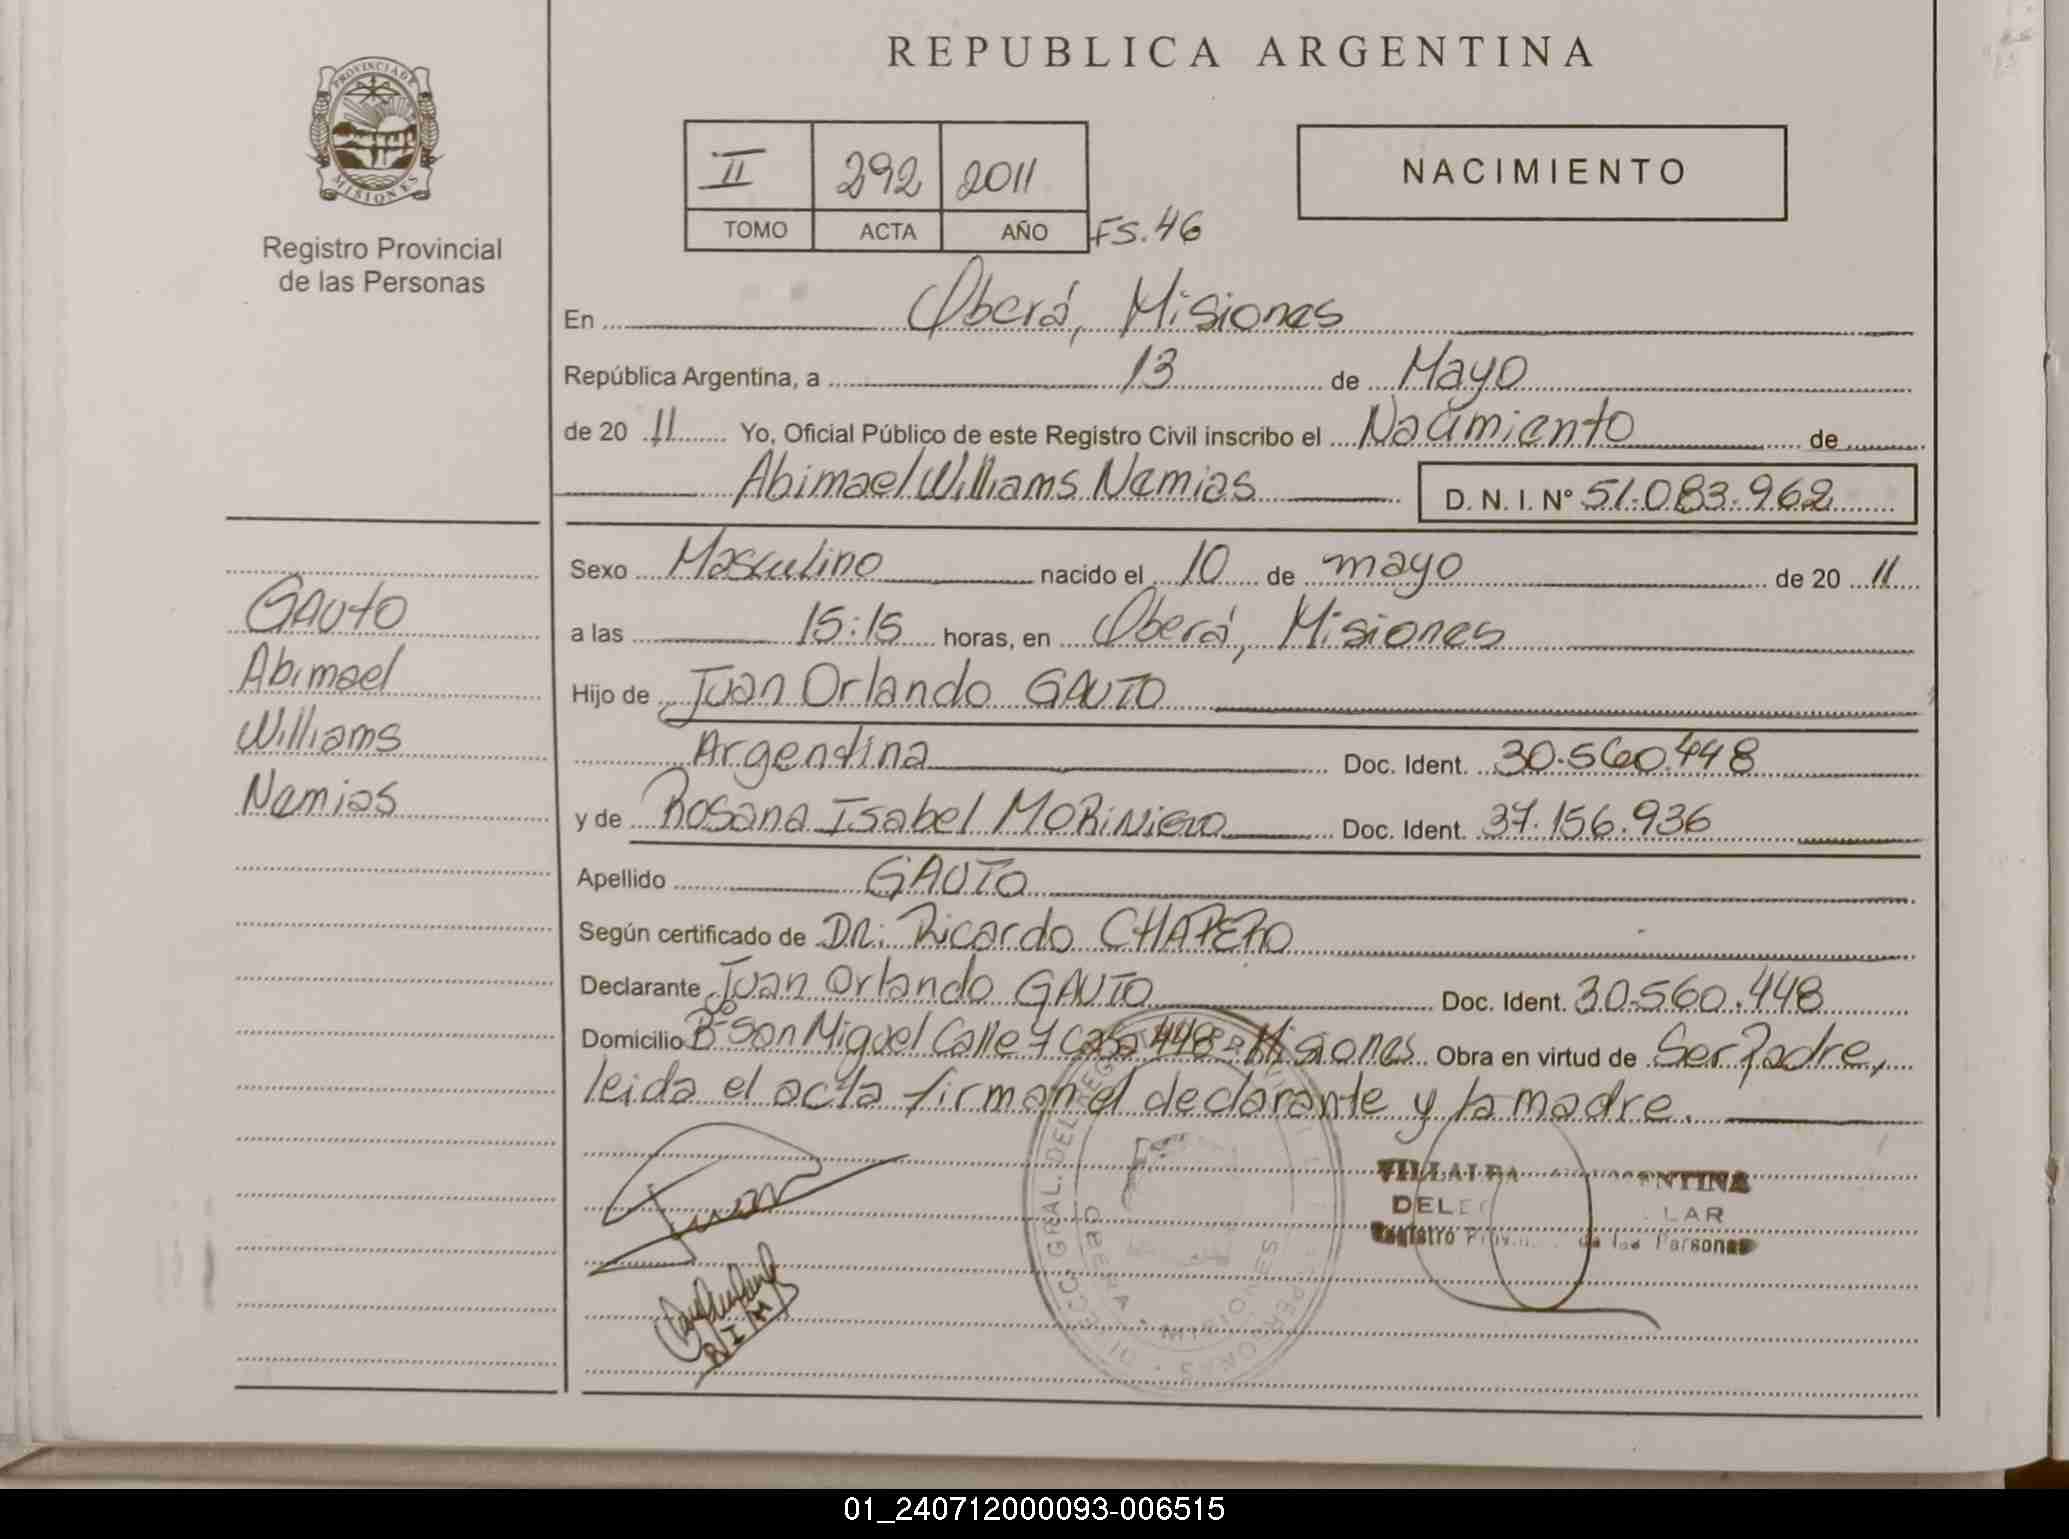 REPUBLICA ARGENTINA
PROVINCIA DE
MISIONES
Registro Provincial
de las Personas
II 292 2011
TOMO ACTA AÑO Fs. 46
NACIMIENTO
En Oberá, Misiones
República Argentina, a 13 de Mayo
de 20 11 Yo, Oficial Público de este Registro Civil inscribo el Nacimiento de
Abimael Williams Nemias D. N. I. Nº 51.083.962
Sexo Masculino nacido el 10 de mayo de 20 11
a las 15:15 horas, en Oberá, Misiones
Hijo de Juan Orlando GAUTO
Argentina Doc. Ident. 30.560.448
y de Rosana Isabel MORiNiGO Doc. Ident. 37.156.936
Apellido GAUTO
Según certificado de DR: Ricardo CHAPEPO
Declarante Juan Orlando GAUTO Doc. Ident. 30.560.448
Domicilio Bº San Miguel Calle 7 Casa 448 - Misiones Obra en virtud de Ser Padre,
leida el acta firman el declarante y la madre.
GAUTO
Abimael
Williams
Nemias
Juan
R/I/M
VILLALBA ENTINA
DELE LAR
Registro de las Personas
OBERÁ
MISIONES
01_240712000093-006515